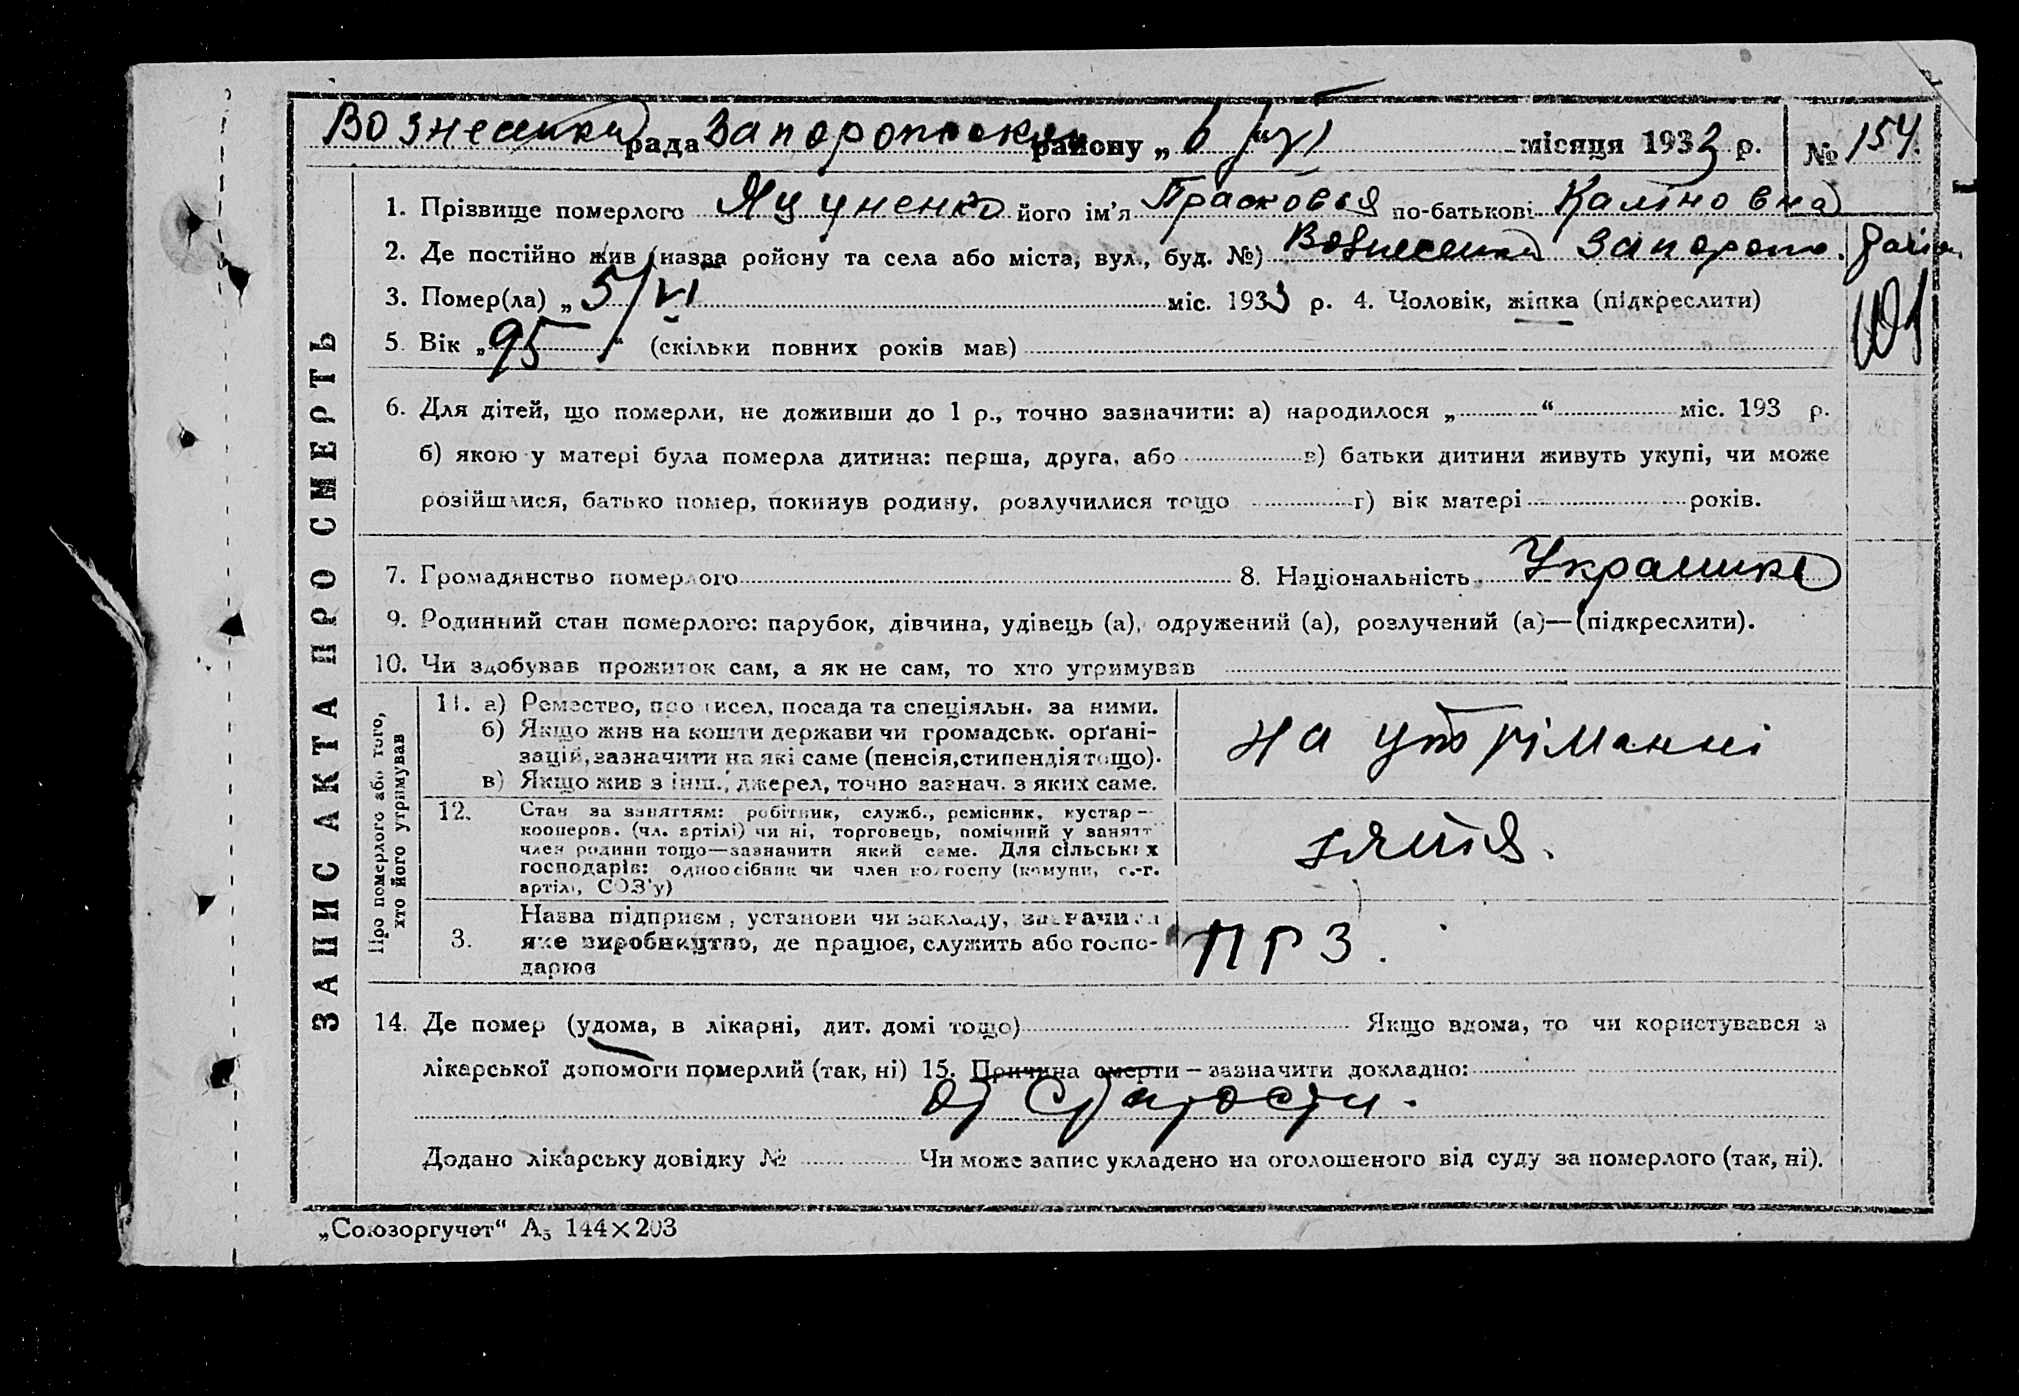 Вознесенка рада Запорожски району „ 6 / VI місяця 1933 р. № 154.
ЗАПИС АКТА ПРО СМЕРТЬ
1. Прізвище померлого Яцуненко його ім'я Прасковья по-батькові Каліновна
2. Де постійно жив (назва району та села або міста, вул., буд. №) Вознесенка Запорож. район
3. Помер(ла) „ 5/VI міс. 1933 р. 4. Чоловік, жінка (підкреслити)
5. Вік „ 95 “ (скільки повних років мав)
6. Для дітей, що померли, не доживши до 1 р., точно зазначити: а) народилося „ “ міс. 193 р.
б) якою у матері була померла дитина: перша, друга, або в) батьки дитини живуть укупі, чи може
розійшлися, батько помер, покинув родину, розлучилися тощо г) вік матері років.
7. Громадянство померлого 8. Національність Украинка
9. Родинний стан померлого: парубок, дівчина, удівець (а), одружений (а), розлучений (а)—(підкреслити).
10. Чи здобував прожиток сам, а як не сам, то хто утримував
Про померлого або того,
хто його утримував
11. а) Ремество, промисел, посада та спеціяльн. за ними.
б) Якщо жив на кошти держави чи громадськ. орґані-
зацій, зазначити на які саме (пенсія, стипендія тощо).
в) Якщо жив з інш. джерел, точно зазнач. з яких саме.
на утріманні
12. Стан за заняттям: робітник, служб., ремісник, кустар—
кооперов. (чл. артілі) чи ні, торговець, помічний у занятт
член родини тощо—зазначити який саме. Для сільських
господарів: одноосібник чи член колгоспу (комуни, с.-г.
артілі, СОЗ'у)
зятя.
3. Назва підприєм., установи чи закладу, зазначити
яке виробництво, де працює, служить або госпо-
дарює
ПРЗ.
14. Де помер (удома, в лікарні, дит. домі тощо) Якщо вдома, то чи користувався з
лікарської допомоги померлий (так, ні) 15. Причина смерти – зазначити докладно:
От Старости.
Додано лікарську довідку № Чи може запис укладено на оголошеного від суду за померлого (так, ні).
„Союзоргучет“ А5 144×203